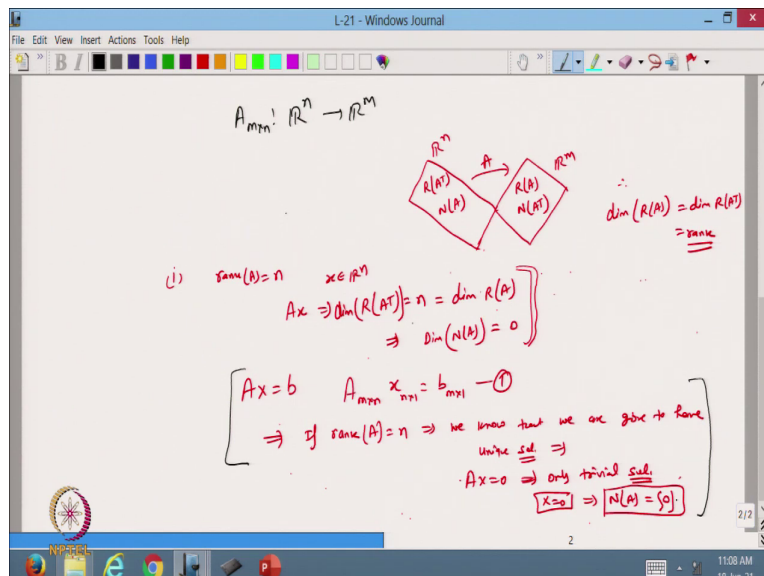 L-21 - Windows Journal
File Edit View Insert Actions Tools Help
B I
A_{m×n}: ℝⁿ → ℝᵐ
ℝⁿ A ℝᵐ
R(Aᵀ) R(A)
N(A) N(Aᵀ)
∴ dim(R(A)) = dim R(Aᵀ)
= rank
(i) rank(A) = n x ∈ ℝⁿ
Ax ⇒ dim(R(Aᵀ)) = n = dim R(A)
⇒ Dim(N(A)) = 0
Ax = b A_{m×n} x_{n×1} = b_{m×1} — ①
⇒ If rank(A) = n ⇒ we know that we are give to have
unique sol. ⇒
Ax = 0 ⇒ only trivial sol.
x = 0 ⇒ N(A) = {0}.
2/2
2
NPTEL
11:08 AM